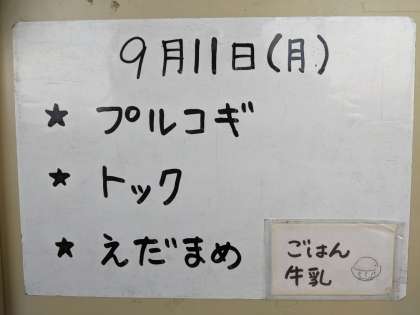 9月11日(月)
★ プルコギ
★ トック
★ えだまめ
ごはん
牛乳